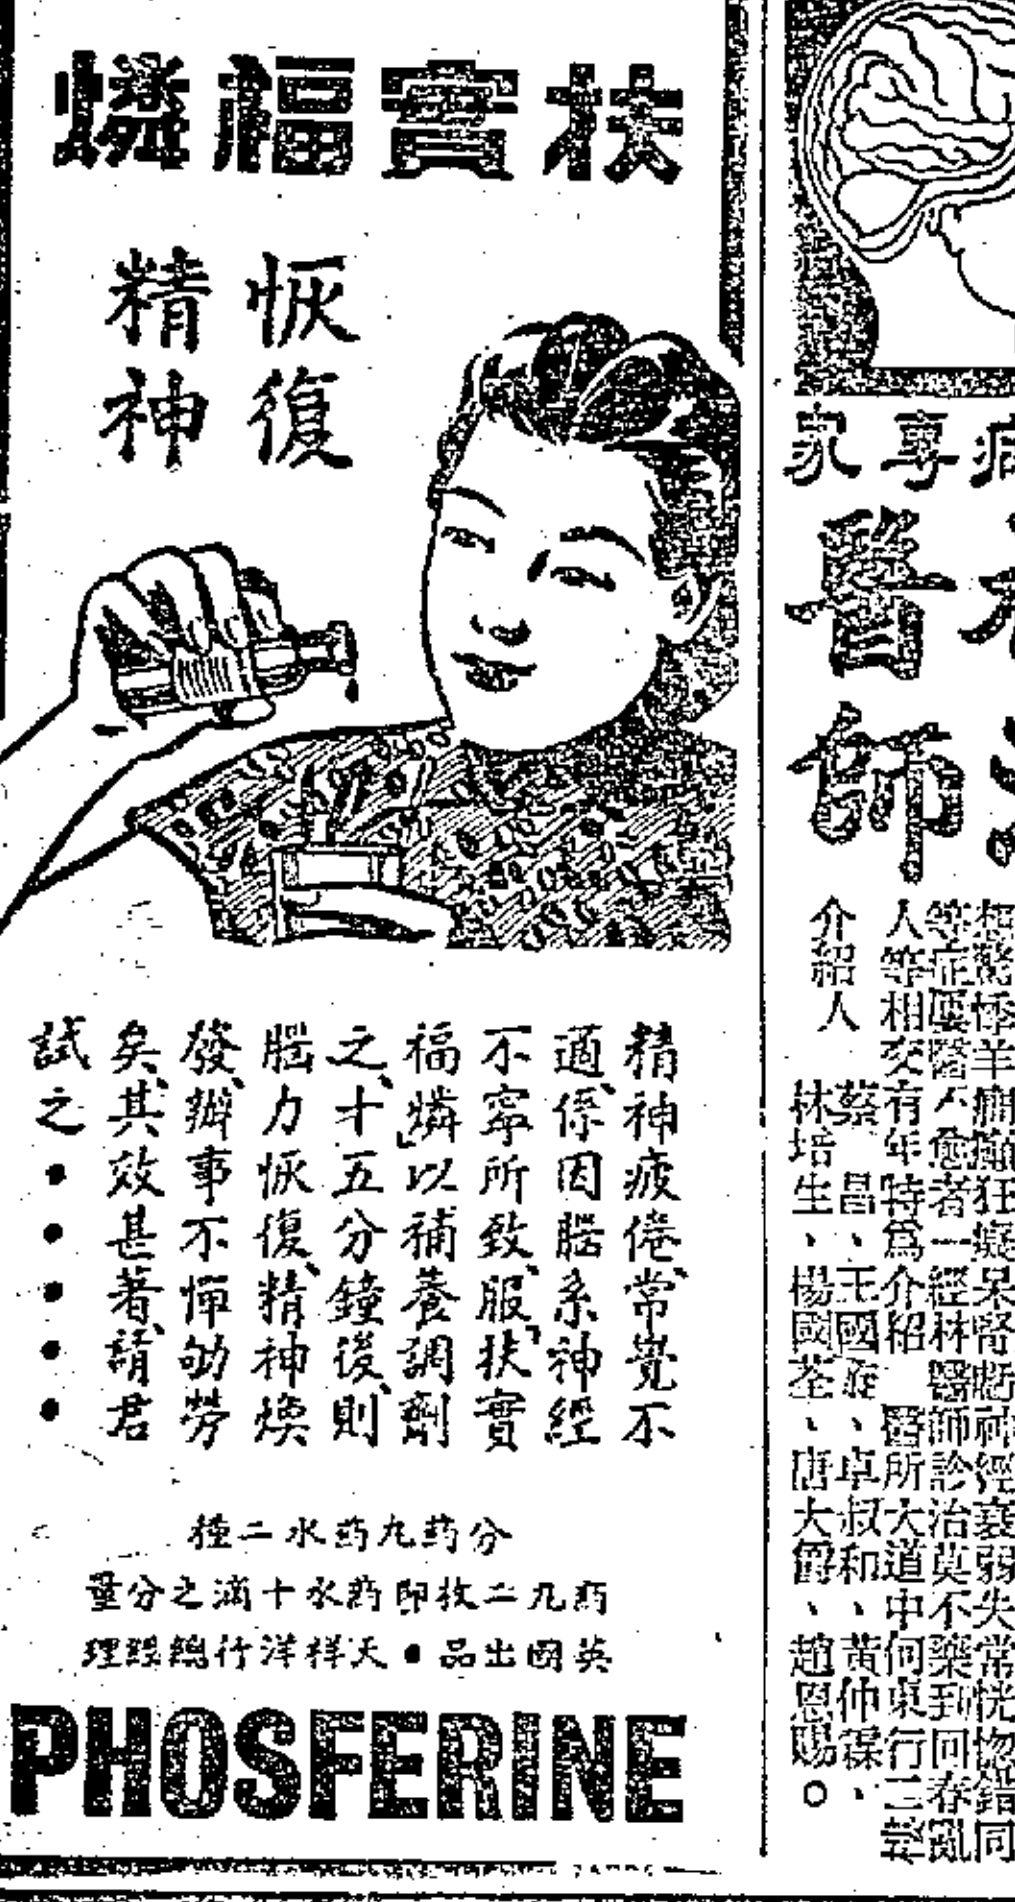 扶實福燐
恢復
精神
精神疲倦、常覺不
適、係因腦系神經
不寧所致、服「扶實
福燐」以補養調劑
之、才五分鐘後、則
腦力恢復、精神煥
發、辦事不憚劬勞
矣、其效甚著、請君
試之•••••
分葯丸葯水二種
葯丸二枚即葯水十滴之分量
英國出品•天祥洋行總經理
PHOSFERINE
病專家
醫師
驚悸羊癇癲狂癡呆腎虧神經衰弱失常恍惚錯同
等症屢醫不愈者一經林醫師診治莫不藥到回春亂
人等相交有年特為介紹 醫所大道中何東行二
介紹人
蔡昌、王國、卓叔和、黃仲、
林培生、楊國荃、唐大爵、趙恩賜。